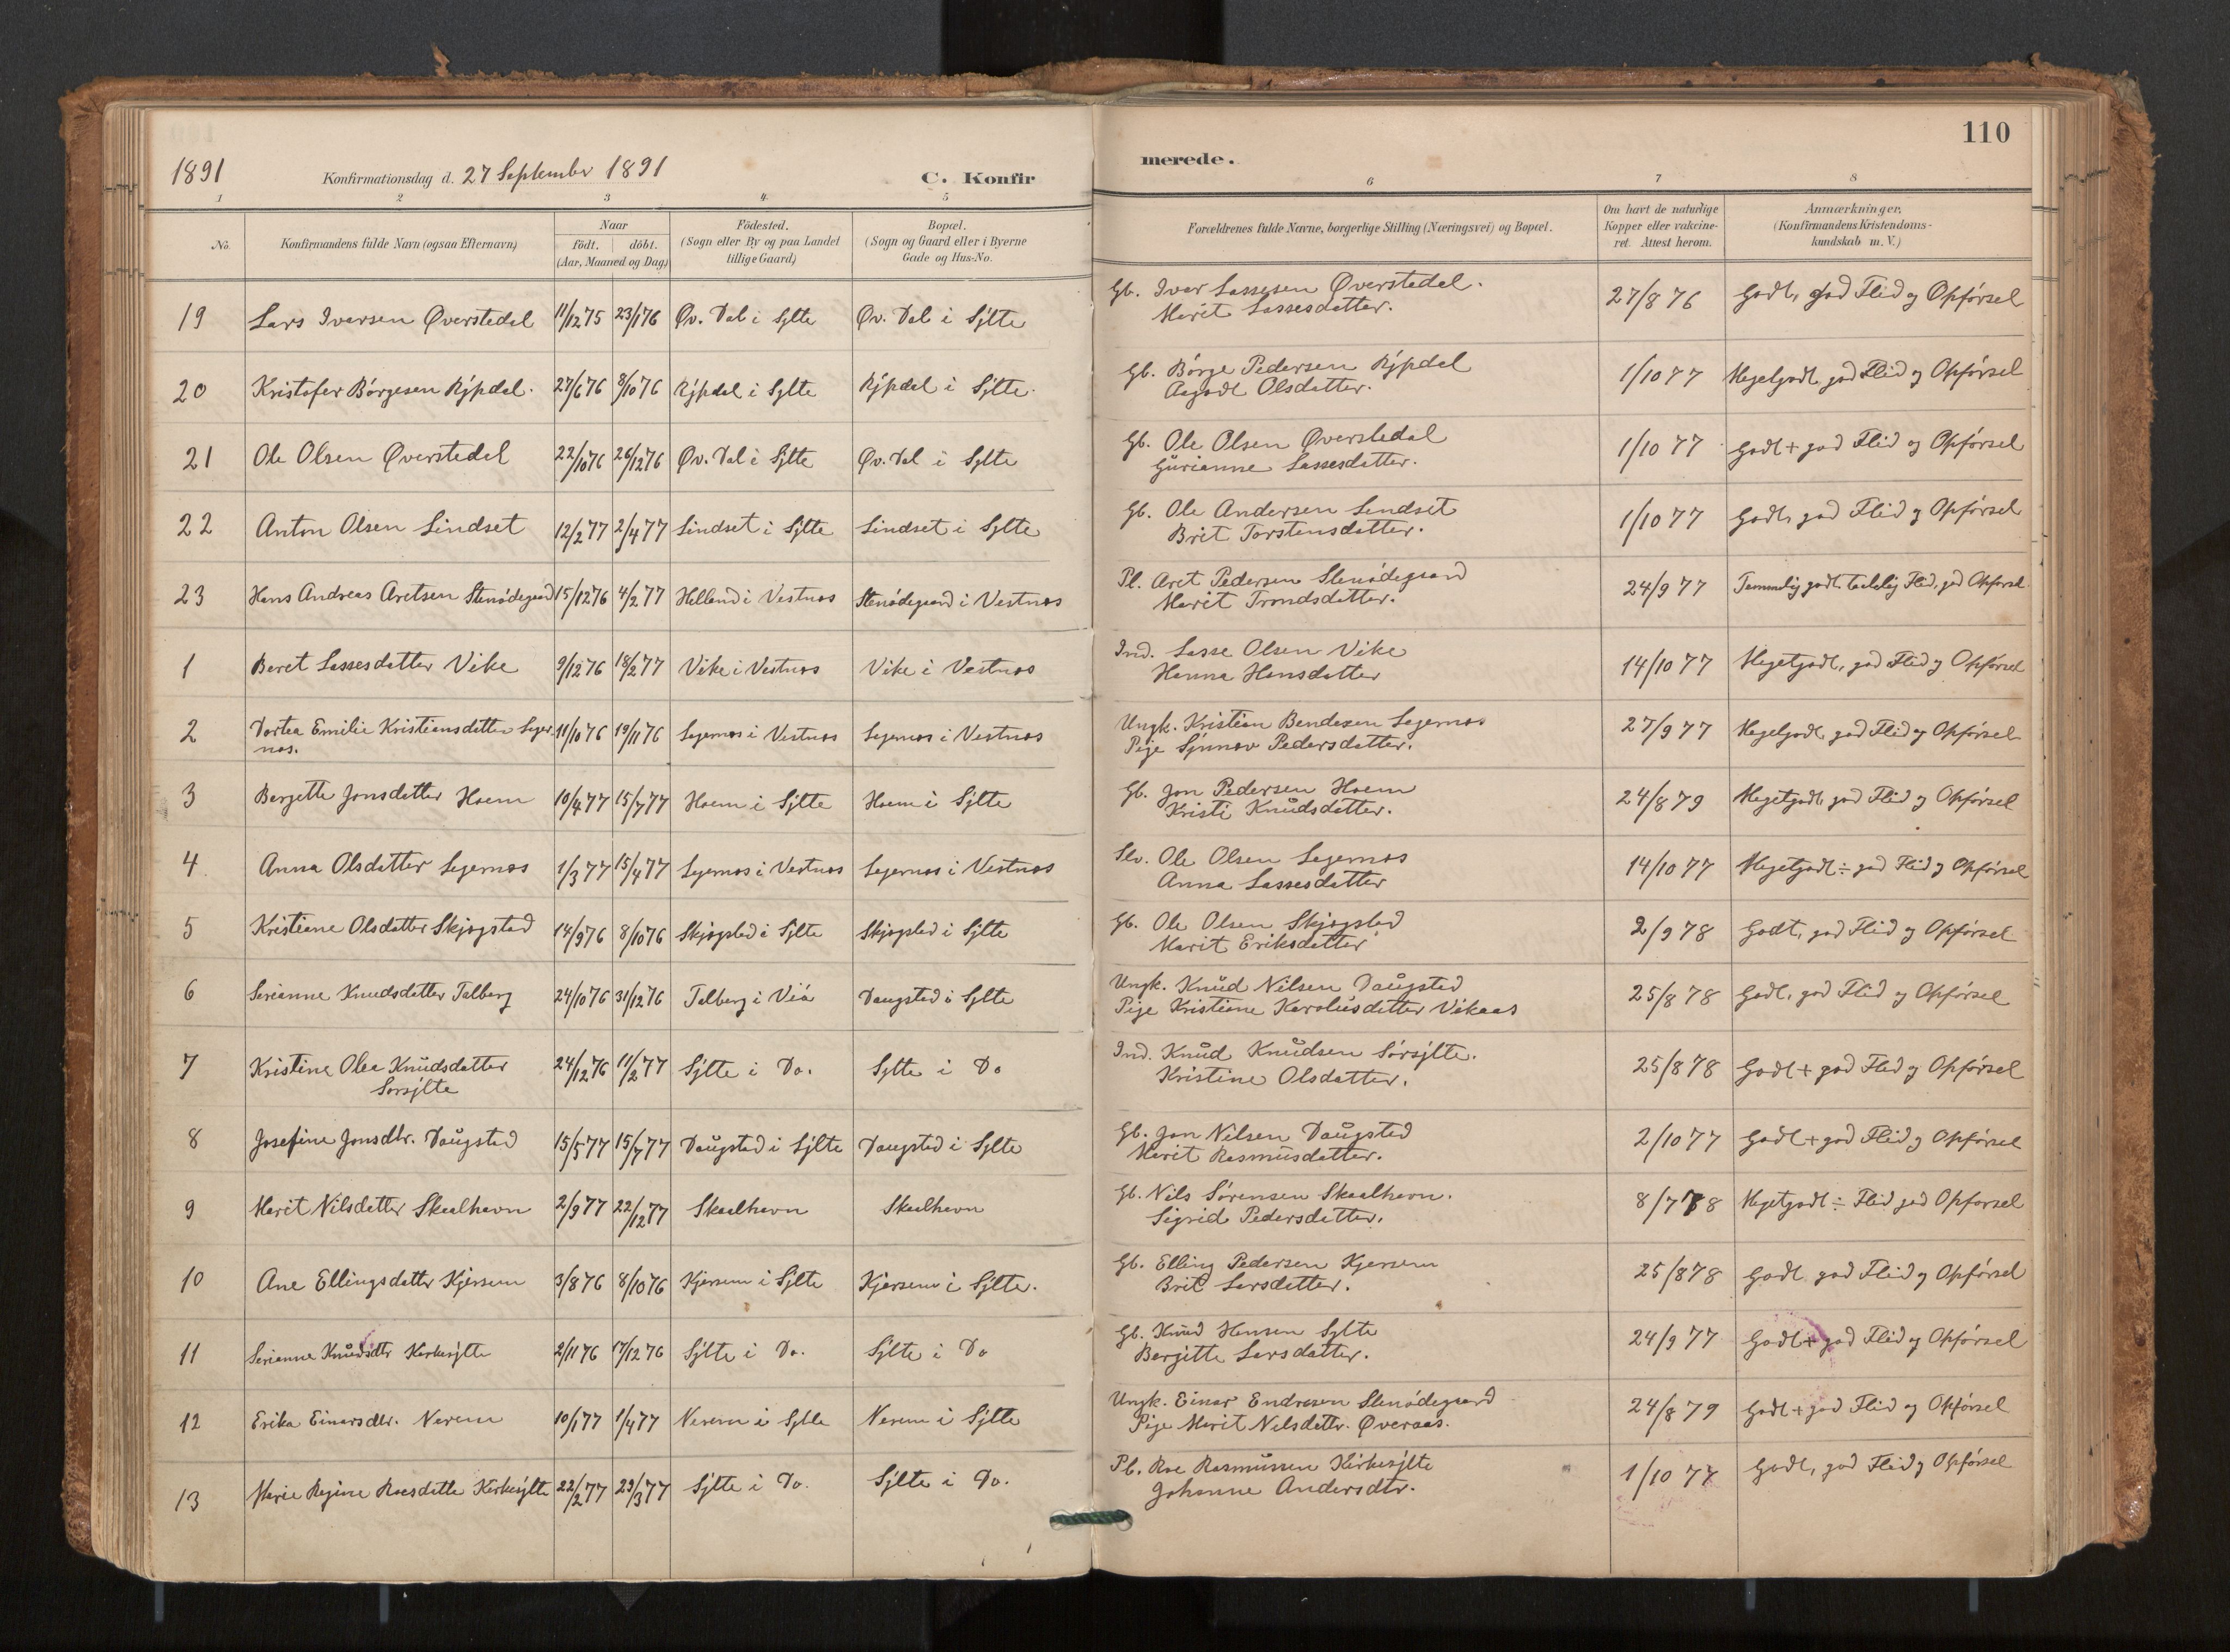 110
1891 Konfirmationsdag d. 27 September 1891 C. Konfir merede.
1 2 3 4 5 6 7 8
No. Konfirmandens fulde Navn (ogsaa Efternavn) Naar födt. döbt. (Aar, Maaned og Dag) Födested. (Sogn eller By og paa Landet tillige Gaard) Bopæl. (Sogn og Gaard eller i Byerne Gade og Hus-No. Forældrenes fulde Navne, borgerlige Stilling (Næringsvei) og Bopæl. Om havt de naturlige Kopper eller vakcineret. Attest herom. Anmærkninger, (Konfirmandens Kristendomskundskab m. V.)
19 Lars Iversen Øverstedal 11/12 75 23/1 76 Øv. Dal i Sylte Øv. Dal i Sylte Gb. Iver Lassesen Øverstedal. 27/8 76 Godt, god Flid og Opførsel
Marit Lassesdatter.
20 Kristofer Børgesen Rypdal. 27/6 76 8/10 76 Rypdal i Sylte Rypdal i Sylte. Gb. Børge Pedersen Rypdal 1/10 77 Megetgodt, god Flid og Opførsel
Aagodt Olsdatter.
21 Ole Olsen Øverstedal 22/10 76 26/12 76 Øv. Dal i Sylte Øv. Dal i Sylte Gb. Ole Olsen Øverstedal 1/10 77 Godt + god Flid og Opførsel
Gurianne Lassesdatter.
22 Anton Olsen Lindset 12/2 77 2/4 77 Lindset i Sylte Lindset i Sylte Gb. Ole Andersen Lindset 1/10 77 Godt, god Flid og Opførsel
Brit Torstensdatter.
23 Hans Andreas Aretsen Stenødegaard 15/12 76 4/2 77 Helland i Vestnes Stenødegaard i Vestnes Pl. Aret Pedersen Stenødegaard 24/9 77 Temmelig godt. tadelig Flid, god Opførsel
Marit Trondsdatter.
1 Beret Lassesdatter Vike 9/12 76 18/2 77 Vike i Vestnes Vike i Vestnes Ind. Lasse Olsen Vike 14/10 77 Megetgodt, god Flid og Opførsel
Hanna Hansdatter
2 Dortea Emilie Kristiansdatter Leger 11/10 76 19/11 76 Legernes i Vestnes Legernes i Vestnes Ungk. Kristian Bendixen Legernes 27/9 77 Megetgodt, god Flid og Opførsel
nes. Pige Synnøv Pedersdatter.
3 Bergitte Jonsdatter Hoem 10/4 77 15/7 77 Hoem i Sylte Hoem i Sylte Gb. Jon Pedersen Hoem 24/8 79 Megetgodt, god Flid og Opførsel
Kristi Knudsdatter.
4 Anna Olsdatter Legernes 1/3 77 15/4 77 Legernes i Vestnes Legernes i Vestnes Slv. Ole Olsen Legernes 14/10 77 Megetgodt ÷ god Flid og Opførsel
Anna Lassesdatter
5 Kristiane Olsdatter Skjøgstad 14/9 76 8/10 76 Skjøgstad i Sylte Skjøgstad i Sylte Gb. Ole Olsen Skjøgstad 2/9 78 Godt, god Flid og Opførsel
Marit Eriksdatter
6 Serianne Knudsdatter Talberg 24/10 76 31/12 76 Talberg i Viø Daugstad i Sylte Ungk. Knud Nilsen Daugstad 25/8 78 Godt, god Flid og Opførsel
Pige Kristiane Karolusdatter Vikaas
7 Kristine Olea Knudsdatter 24/12 76 11/2 77 Sylte i Do. Sylte i Do Ind. Knud Knudsen Sørsylte. 25/8 78 Godt + god Flid og Opførsel
Sørsylte Kristine Olsdatter.
8 Josefine Jonsdtr. Daugstad 15/5 77 15/7 77 Daugstad i Sylte Daugstad i Sylte Gb. Jon Nilsen Daugstad 2/10 77 Godt + god Flid og Opførsel
Marit Rasmusdatter.
9 Marit Nilsdatter Skaalhavn 2/9 77 22/12 77 Skaalhavn Skaalhavn Gb. Nils Sørensen Skaalhavn. 8/7 78 Megetgodt ÷ Flid god Opførsel
Sigrid Pedersdatter.
10 Ane Ellingsdatter Kjersem 3/8 76 8/10 76 Kjersem i Sylte Kjersem i Sylte. Gb. Elling Pedersen Kjersem 25/8 78 Godt god Flid og Opførsel
Brit Larsdatter.
11 Serianne Knudsdtr Kirkesylte 2/11 76 17/12 76 Sylte i Do. Sylte i Do Gb. Knud Hansen Sylte 24/9 77 Godt + god Flid og Opførsel
Bergitte Larsdatter.
12 Erika Einarsdtr. Nerem 10/1 77 1/4 77 Nerem i Sylte Nerem i Sylte Ungk. Einar Endresen Stenødegaard 24/8 79 Godt + god Flid og Opførsel
Pige Marit Nilsdattr. Øveraas.
13 Marie Regine Roesdatter Kirkesylte 22/2 77 29/3 77 Sylte i Do. Sylte i Do. Pl. Roe Rasmussen Kirkesylte 1/10 77 Godt, god Flid og Opførsel
Johanne Andersdtr.